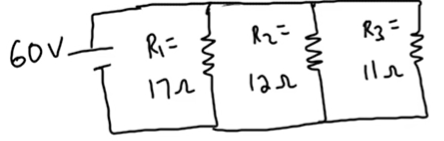 60V
R₁=
17Ω
R₂=
12Ω
R₃=
11Ω